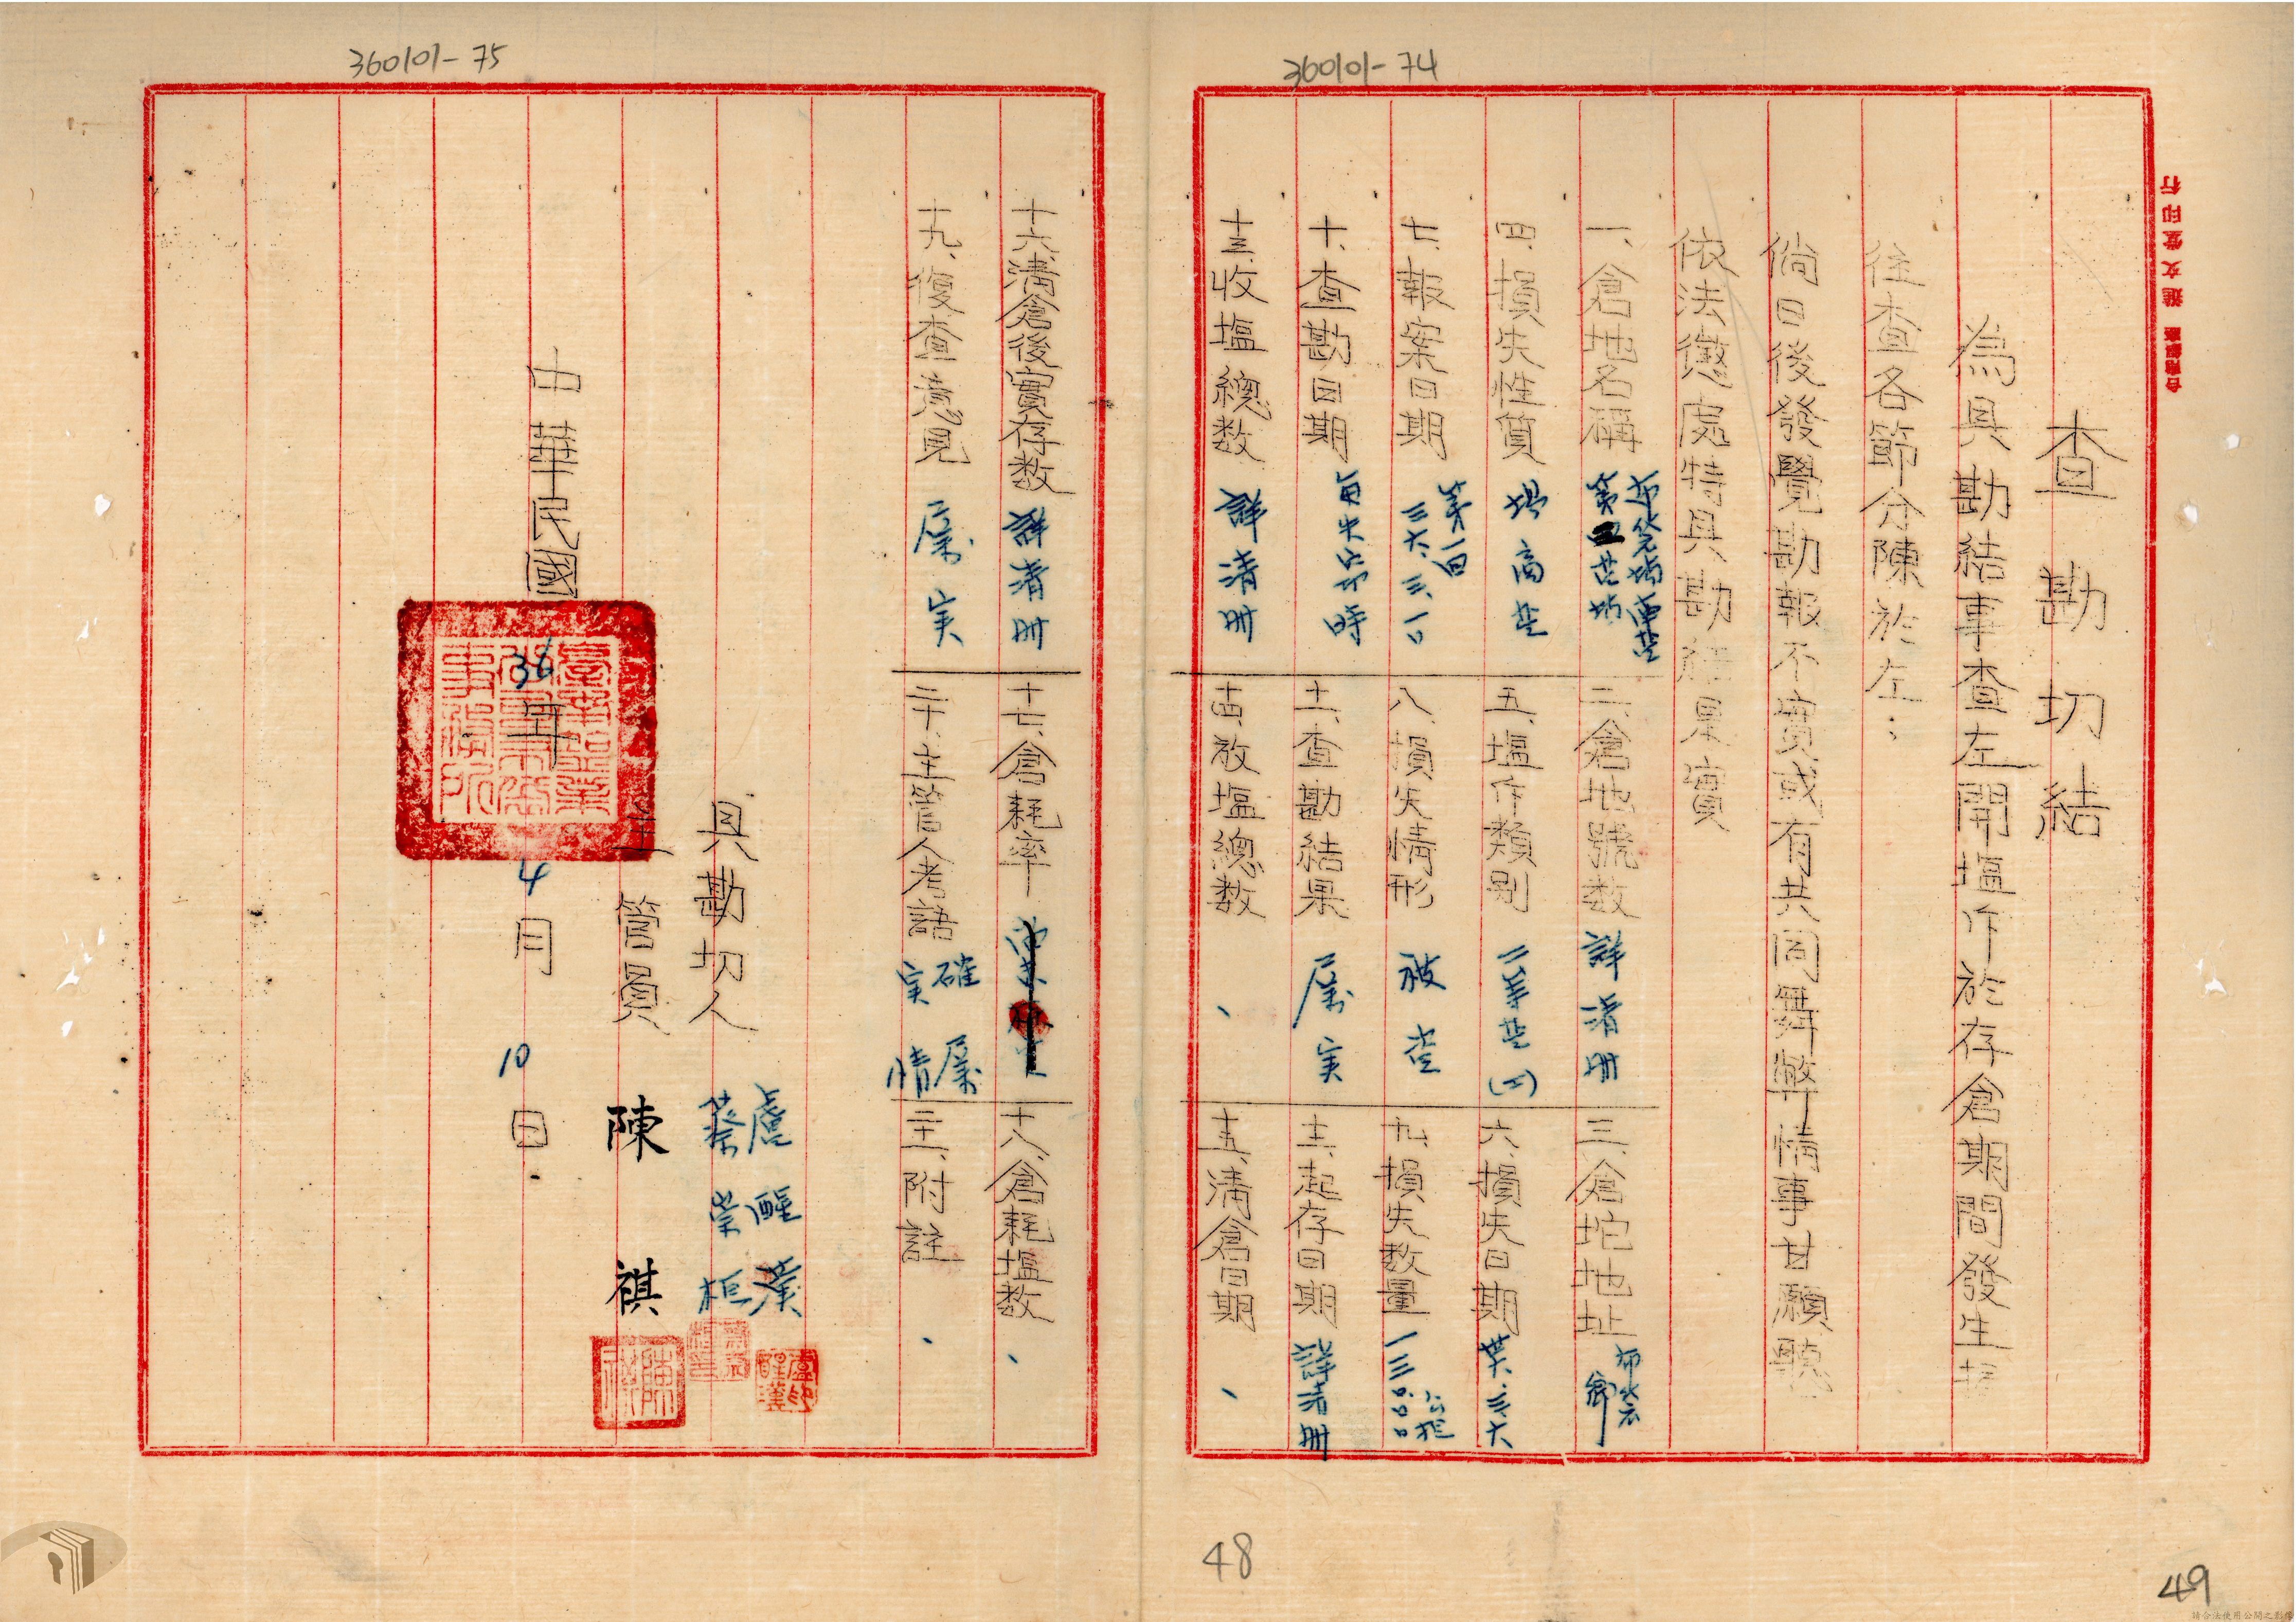 360101-74
查勘切結
為具勘結事查左開塩斤於存倉期間發生損
往查各節分陳於左：
倘日後發覺勘報不實或有共同舞弊情事甘願聽
依法懲處特具勘結果實
一、倉地名稱 布袋場南
第 塩場
二、倉地號数 詳清册
三、倉坨地址 布袋
鄉
四、損失性質
五、塩斤類別 二等塩(工)
六、損失日期 卅六、三、六
七、報案日期 第一日
三六、三、一〇
八、損失情形 被盗
九、損失数量 一三〇.〇〇 公担
十、查勘日期 每失窃時
十一、查勘結果 属实
十二、起存日期 詳清册
十三、收塩總数 詳清册
十四、放塩總数 、
十五、清倉日期 、
十六、清倉後實存数 詳清册
十七、倉耗率
十八、倉耗塩数 、
十九、復查意見 属实
二十、主管人考語 確属
实情
二十一、附註 、
具勘切人 盧醒漢
蔡崇桓
主管員 陳祺
中華民國36年4月10日
360101-75
48
49